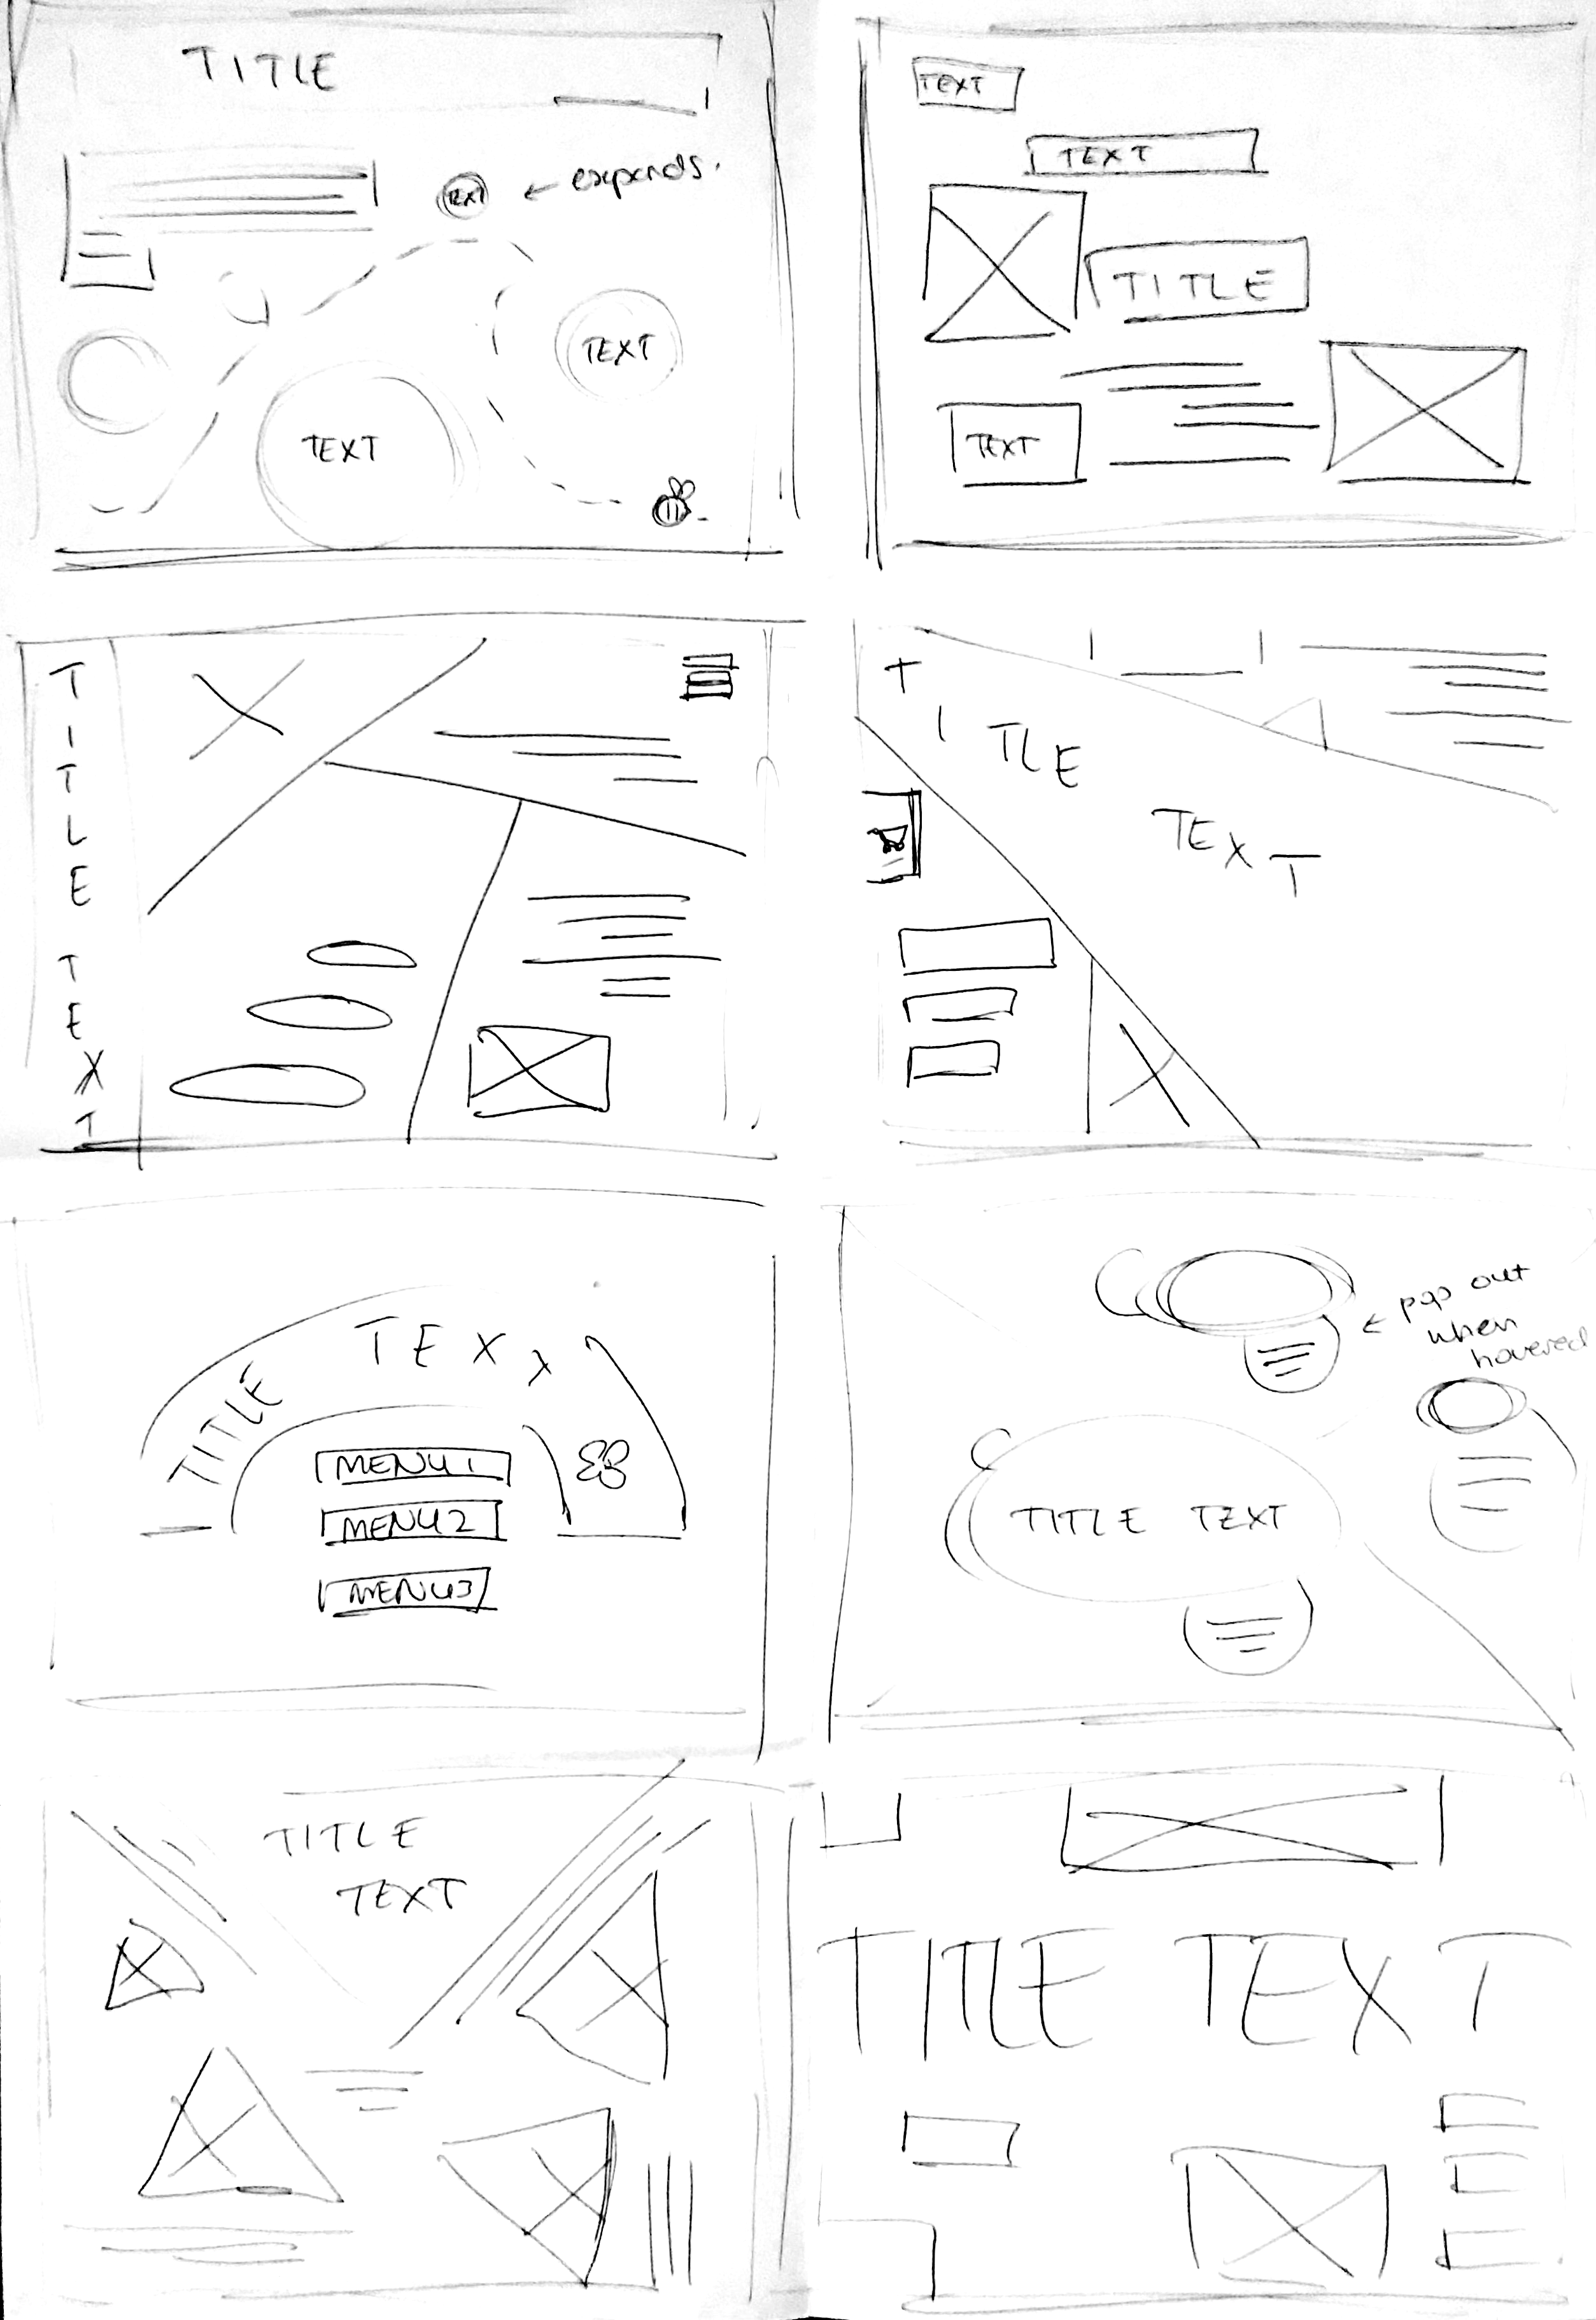 TITLE
TEXT ← expends.
TEXT
TEXT
TEXT
TEXT
TITLE
TEXT
TITLE TEXT
TITLE
TEXT
TITLE
TEXT
MENU1
MENU2
MENU3
← pop out
when
hovered
TITLE TEXT
TITLE
TEXT
TITLE TEXT